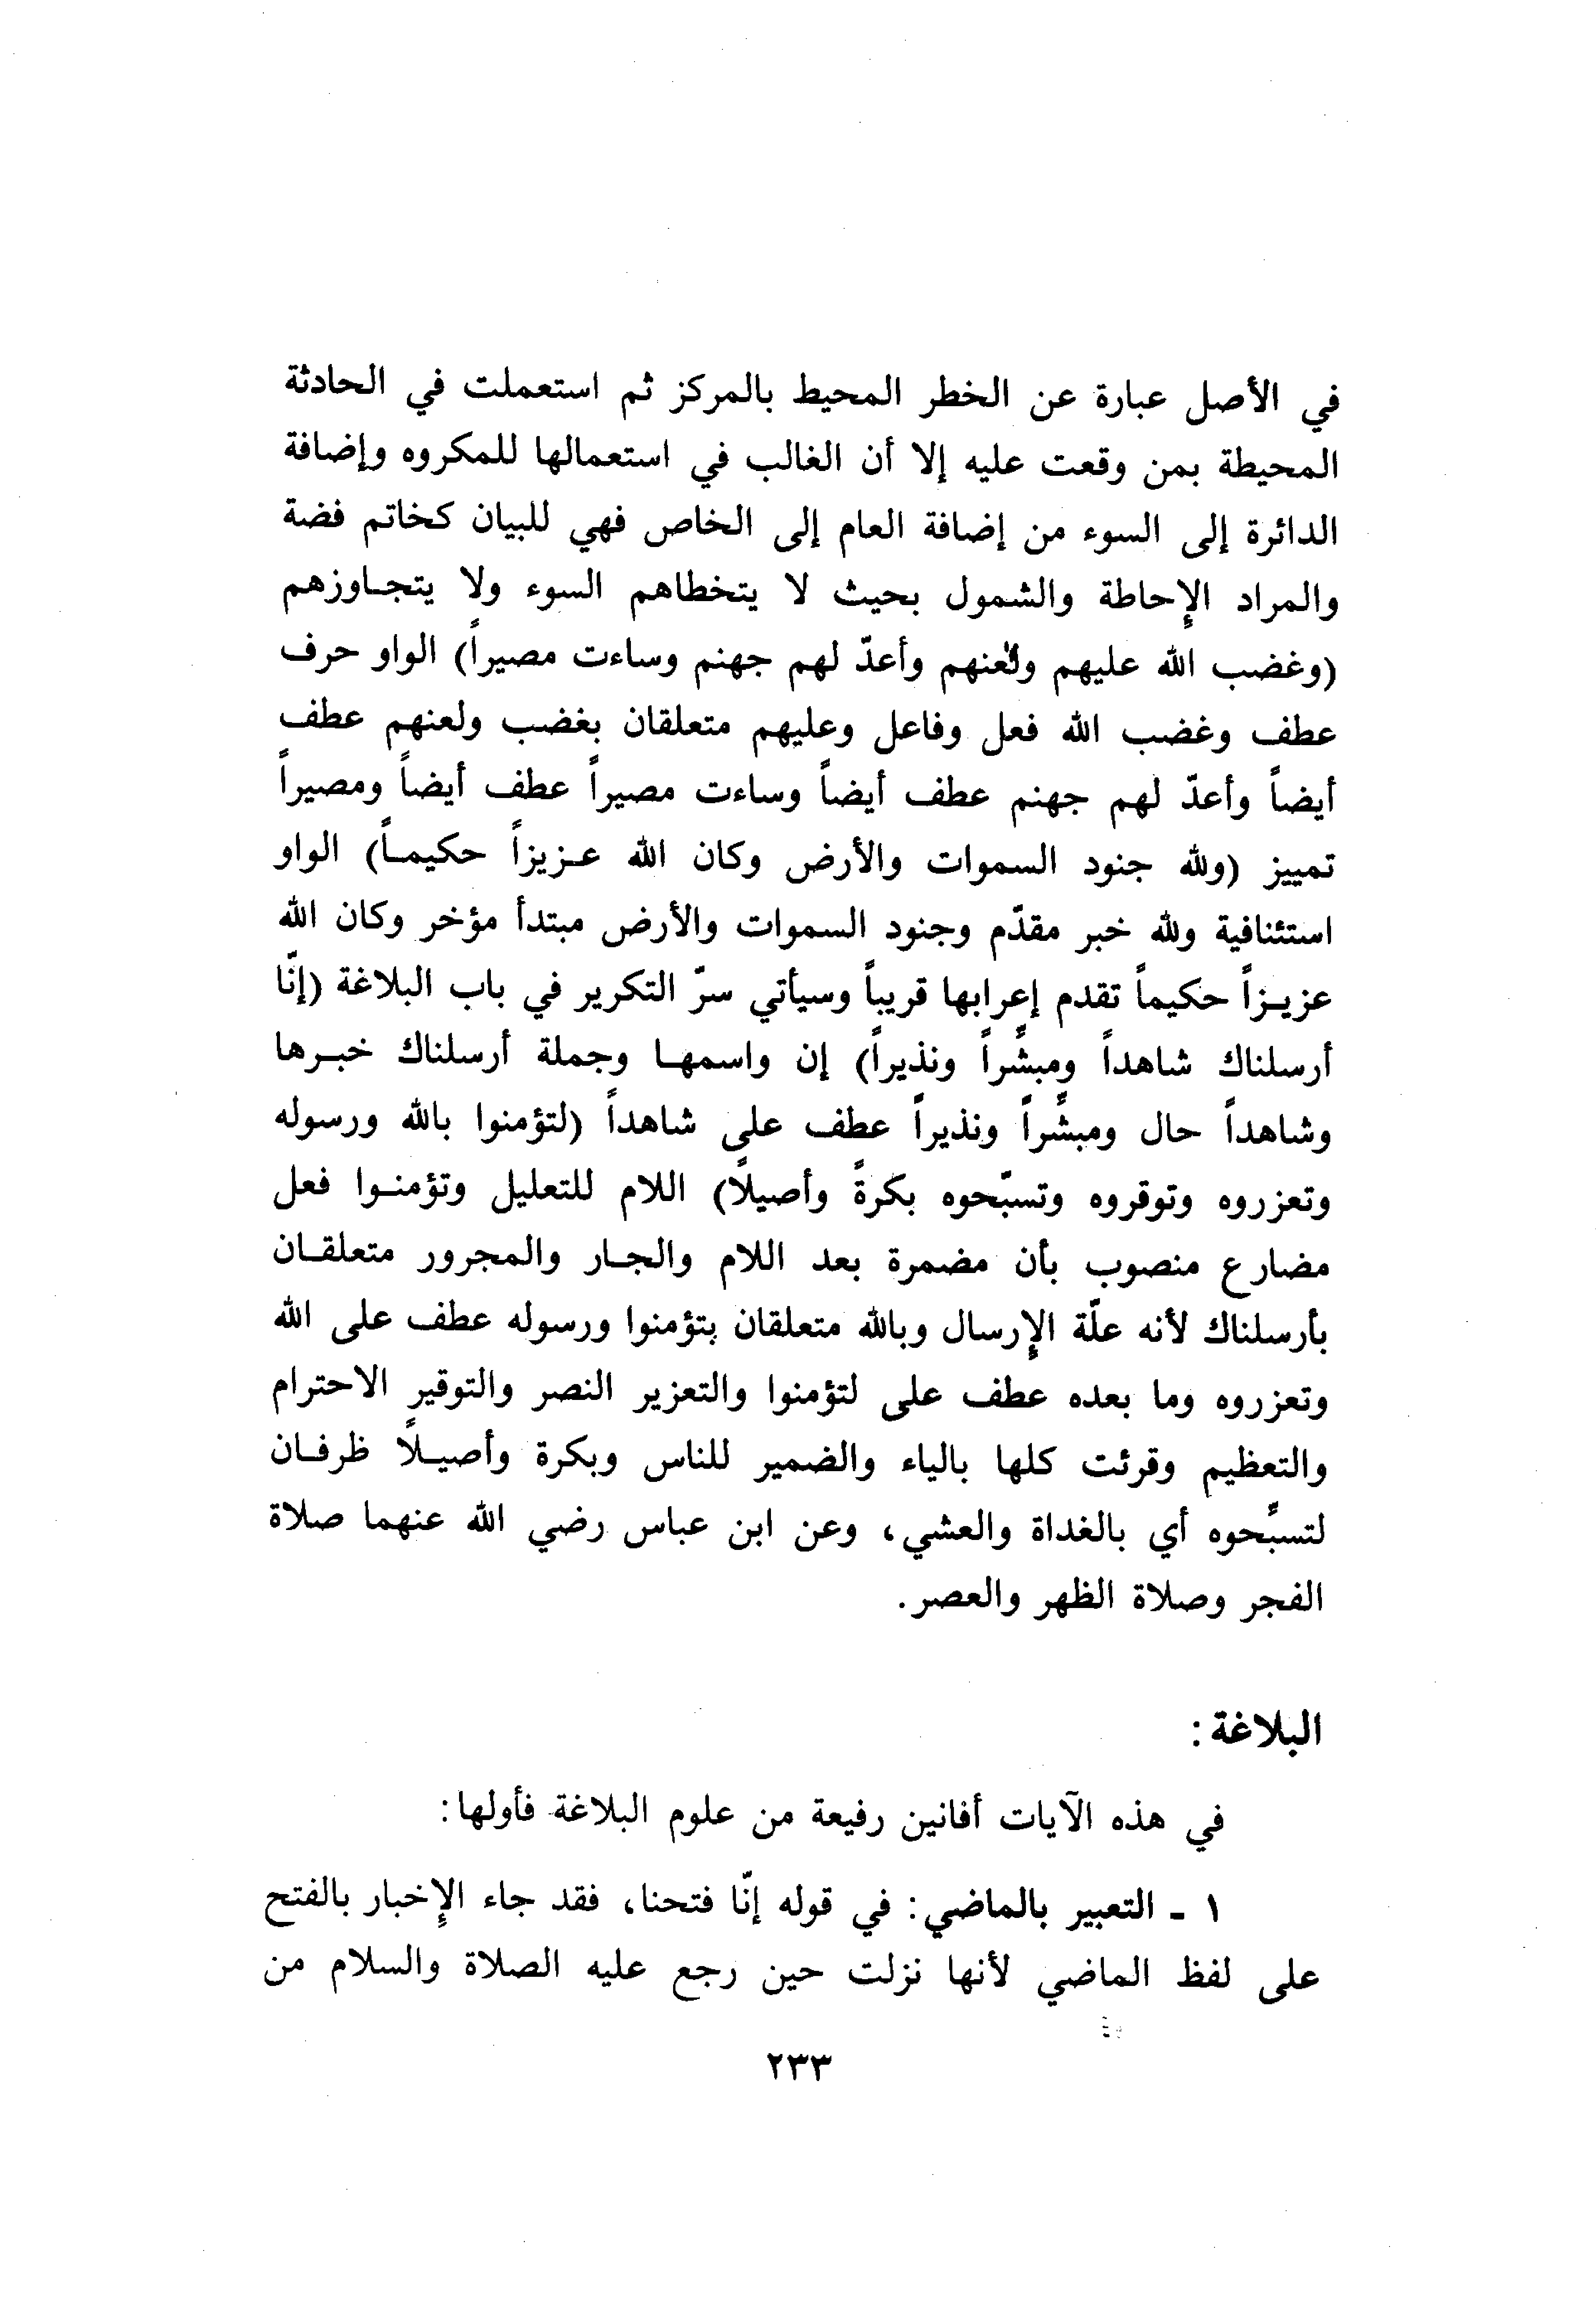 في الأصل عبارة عن الخطر المحيط بالمركز ثم استعملت في الحادثة
المحيطة بمن وقعت عليه إلا أن الغالب في استعمالها للمكروه وإضافة
الدائرة إلى السوء من إضافة العام إلى الخاص فهي للبيان كخاتم فضة
والمراد الإحاطة والشمول بحيث لا يتخطاهم السوء ولا يتجاوزهم
(وغضب الله عليهم ولعنهم وأعدّ لهم جهنم وساءت مصيراً) الواو حرف
عطف وغضب الله فعل وفاعل وعليهم متعلقان بغضب ولعنهم عطف
أيضاً وأعدّ لهم جهنم عطف أيضاً وساءت مصيراً عطف أيضاً ومصيراً
تمييز (ولله جنود السموات والأرض وكان الله عزيزاً حكيماً) الواو
استئنافية ولله خبر مقدّم وجنود السموات والأرض مبتدأ مؤخر وكان الله
عزيزاً حكيماً تقدم إعرابها قريباً وسيأتي سرّ التكرير في باب البلاغة (إنّا
أرسلناك شاهداً ومبشّراً ونذيراً) إن واسمها وجملة أرسلناك خبرها
وشاهداً حال ومبشّراً ونذيراً عطف على شاهداً (لتؤمنوا بالله ورسوله
وتعزروه وتوقروه وتسبّحوه بكرةً وأصيلًا) اللام للتعليل وتؤمنوا فعل
مضارع منصوب بأن مضمرة بعد اللام والجار والمجرور متعلقان
بأرسلناك لأنه علّة الإرسال وبالله متعلقان بتؤمنوا ورسوله عطف على الله
وتعزروه وما بعده عطف على لتؤمنوا والتعزير النصر والتوقير الاحترام
والتعظيم وقرئت كلها بالياء والضمير للناس وبكرة وأصيلًا ظرفان
لتسبّحوه أي بالغداة والعشي، وعن ابن عباس رضي الله عنهما صلاة
الفجر وصلاة الظهر والعصر.
البلاغة:
في هذه الآيات أفانين رفيعة من علوم البلاغة فأولها:
١ - التعبير بالماضي: في قوله إنّا فتحنا، فقد جاء الإخبار بالفتح
على لفظ الماضي لأنها نزلت حين رجع عليه الصلاة والسلام من
٢٣٣